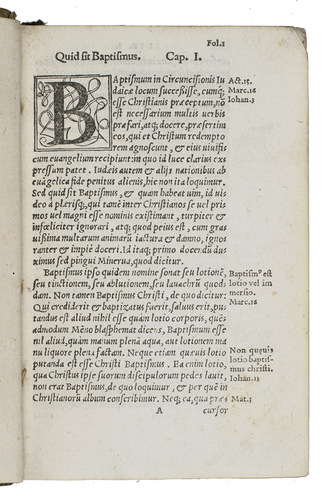 Fol.1
Quid sit Baptismus. Cap. I.
BAptismum in Circuncisionis Iu
daicæ locum successisse, cumq;
esse Christianis præceptum, nõ
est necessarium multis verbis
præfari, atq; docere, præsertim
eos, qui et Christum redempto
rem agnoscunt, & eius viuifi
cum euangelium recipiunt: in quo id luce clarius ex-
pressum patet. Iudæis autem et alijs nationibus ab
euãgelica fide penitus alienis, hic non ita loquimur.
Sed quid sit Baptismus, & quam habeat uim, id vi-
deo a plærisq; qui tamẽ inter Christianos se vel pri
mos vel magni esse nominis existimant, turpiter &
infœliciter ignorari, atq; quod peius est, cum gra-
uißima multarum animarũ iactura & damno, ignorantur
ranter & impiè doceri. Id itaq; primo docendũ du-
ximus sed pingui Minerua, quod dicitur.
Baptismus ipso quidem nomine sonat seu lotionẽ,
seu tinctionem, seu ablutionem, seu lauachrũ quod-
dam. Non tamen Baptismus Christi, de quo dicitur:
Qui crediderit & baptizatus fuerit, saluus erit, pu-
tandus est aliud nihil esse quàm lotio corporis, quẽ-
admodum Mẽno blasphemat dicens, Baptismum esse
nil aliud, quàm manum plena aqua, aut lotionem ma
nu liquore plena factam. Neque etiam quæuis lotio
putanda est esse Christi Baptismus. Ea enim lotio,
qua Christus ipse suorum discipulorum pedes lauit,
non erat Baptismus, de quo loquimur, & per quẽ in
Christianorũ album conscribimur. Neq; ea, qua præs
A cursor
Act.15.
Marc.16
Iohan.3
Baptismꝰ est
lotio vel im
mersio.
Marc.16
Non quæuis
lotio baptis-
mus christi.
Iohan.13
Mat.3